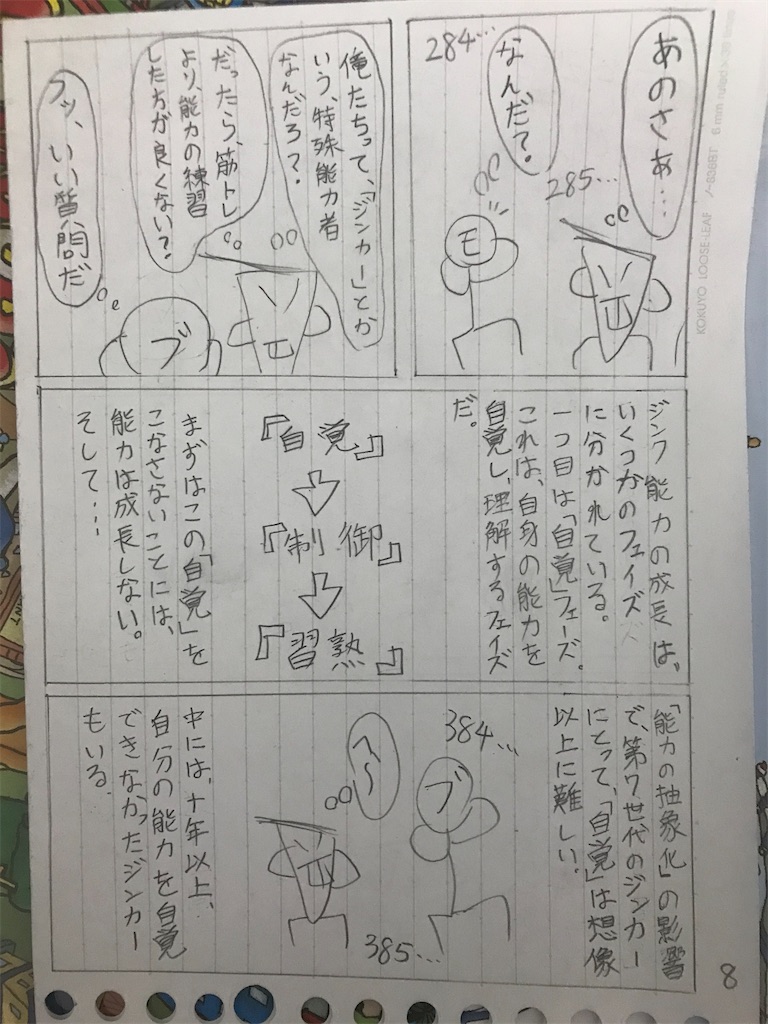 あのさぁ…
285…
なんだ?
284…
モ
俺たちって、「ジンカー」とか
いう、特殊能力者
なんだろ?
だったら、筋トレ
より、能力の練習
した方が良くない?
フッ、いい質問だ
ブ
ジンク能力の成長は、
いくつかのフェイズ
に分かれている。
一つ目は「自覚」フェーズ。
これは、自身の能力を
自覚し、理解するフェイズ
だ。
『自覚』
『制御』
『習熟』
まずはこの「自覚」を
こなさないことには、
能力は成長しない。
そして…
「能力の抽象化」の影響
で、第7世代のジンカー
にとって、「自覚」は想像
以上に難しい。
384…
ブ
へ〜
385…
中には、十年以上、
自分の能力を自覚
できなかったジンカー
もいる.
8
KOKUYO LOOSE-LEAF ノ-836BT 6 mm ruled